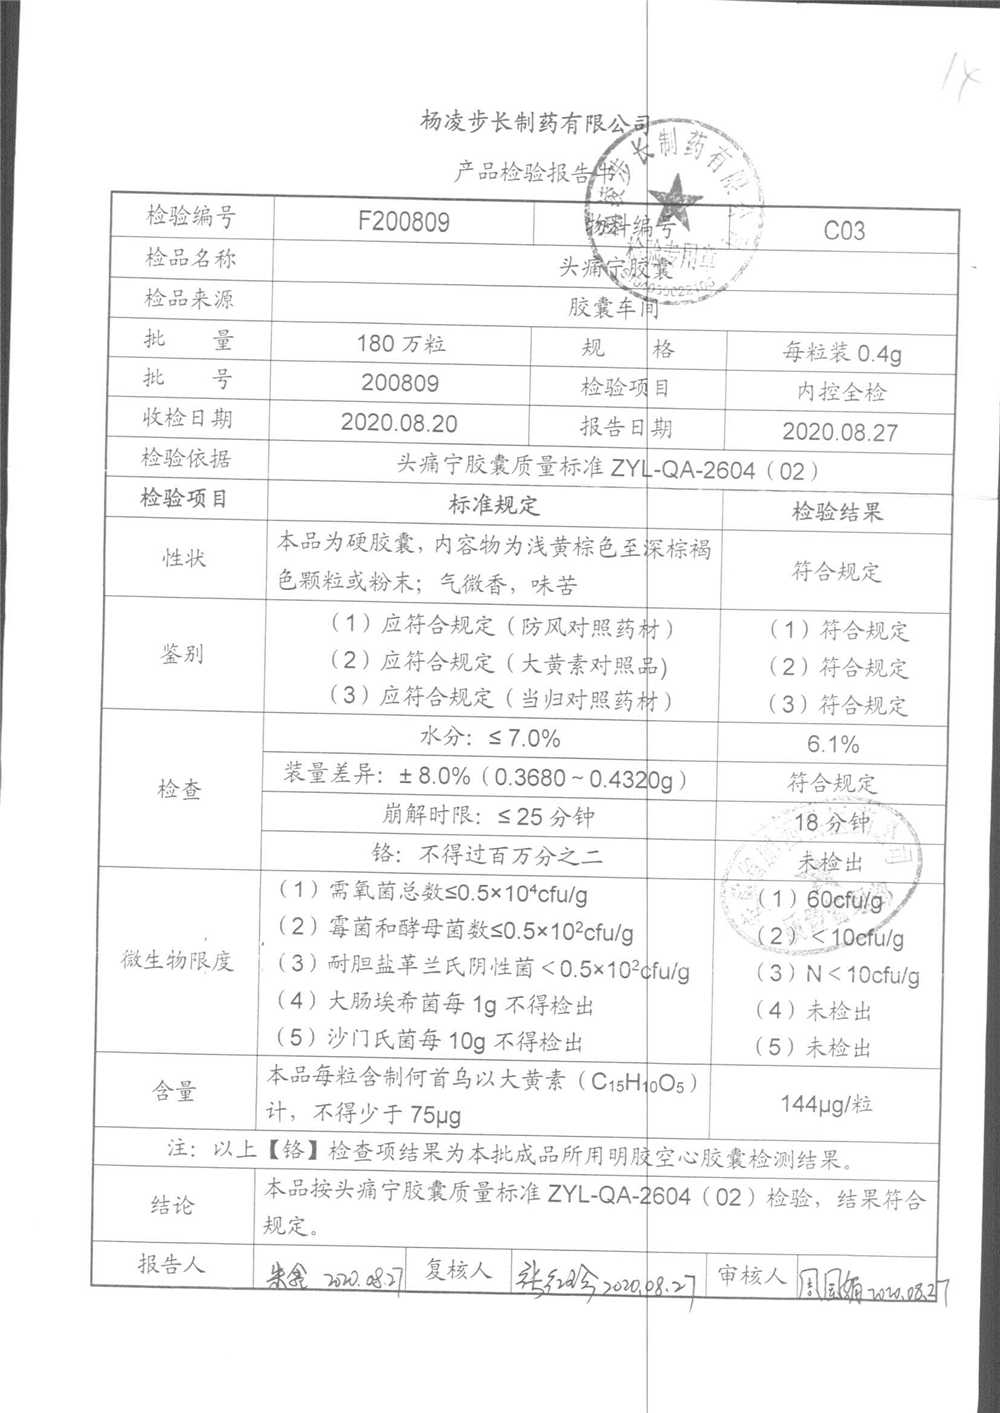 14
杨凌步长制药有限公司
产品检验报告书
检验编号 F200809 物料编号 C03
检品名称 头痛宁胶囊
检品来源 胶囊车间
批 量 180万粒 规 格 每粒装0.4g
批 号 200809 检验项目 内控全检
收检日期 2020.08.20 报告日期 2020.08.27
检验依据 头痛宁胶囊质量标准ZYL-QA-2604（02）
检验项目 标准规定 检验结果
性状 本品为硬胶囊，内容物为浅黄棕色至深棕褐
色颗粒或粉末；气微香，味苦 符合规定
鉴别 （1）应符合规定（防风对照药材） （1）符合规定
（2）应符合规定（大黄素对照品) （2）符合规定
（3）应符合规定（当归对照药材） （3）符合规定
检查 水分：≤7.0% 6.1%
装量差异：±8.0%（0.3680～0.4320g） 符合规定
崩解时限：≤25分钟 18分钟
铬：不得过百万分之二 未检出
微生物限度 （1）需氧菌总数≤0.5×10⁴cfu/g （1）60cfu/g
（2）霉菌和酵母菌数≤0.5×10²cfu/g （2）＜10cfu/g
（3）耐胆盐革兰氏阴性菌＜0.5×10²cfu/g （3）N＜10cfu/g
（4）大肠埃希菌每1g不得检出 （4）未检出
（5）沙门氏菌每10g不得检出 （5）未检出
含量 本品每粒含制何首乌以大黄素（C₁₅H₁₀O₅）
计，不得少于75μg 144μg/粒
注：以上【铬】检查项结果为本批成品所用明胶空心胶囊检测结果。
结论 本品按头痛宁胶囊质量标准ZYL-QA-2604（02）检验，结果符合
规定。
报告人 2020.08.27 复核人 2020.08.27 审核人 2020.08.27